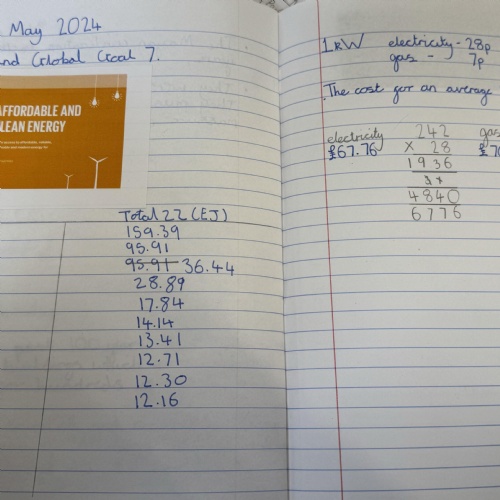 May 2024
and Global Goal 7.
AFFORDABLE AND
CLEAN ENERGY
Total 22 (EJ)
159.39
95.91
95.91 36.44
28.89
17.84
14.14
13.41
12.71
12.30
12.16
1kW electricity - 28p
gas - 7p
The cost for an average
electricity
£67.76
242
× 28
1936
4840
6776
gas
£70